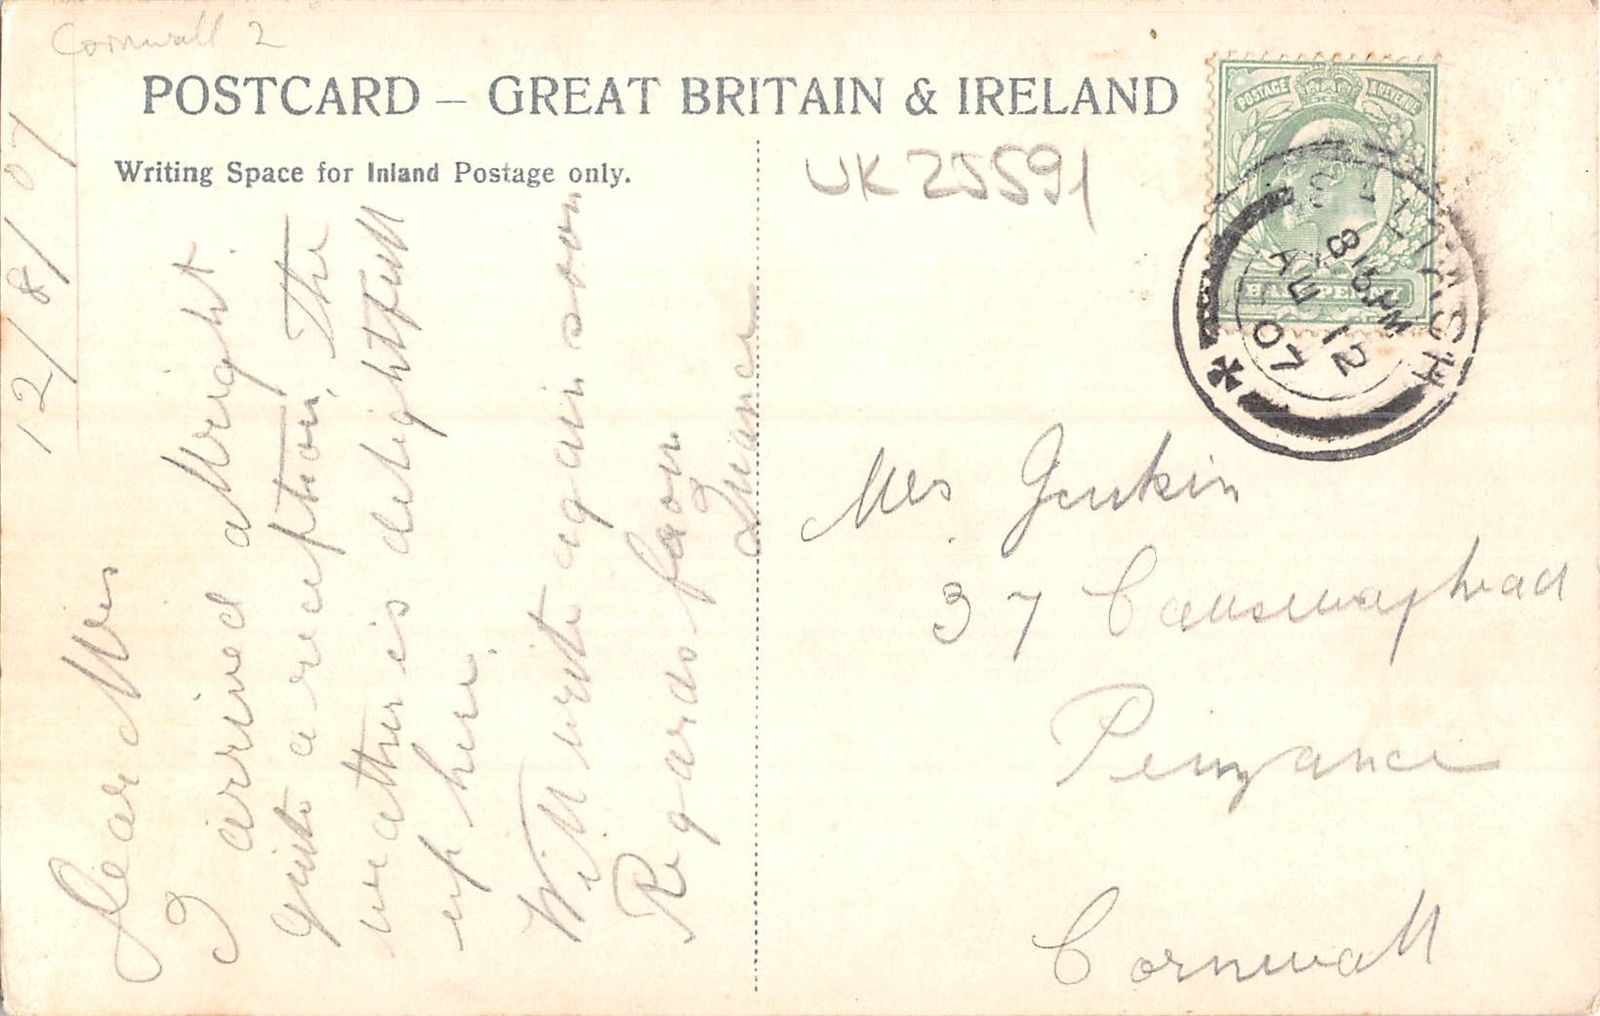 Cornwall 2
POSTCARD – GREAT BRITAIN & IRELAND
Writing Space for Inland Postage only.
UK 25591
POSTAGE & REVENUE
HALFPENNY
8 15 PM
AU 12
07
12/8/07
Dear Mrs
I arrived allright.
quite a reception. The
weather is delightfull
up here.
Will write again soon
Regards from
Mrs Jenkin
37 Causewayhead
Penzance
Cornwall